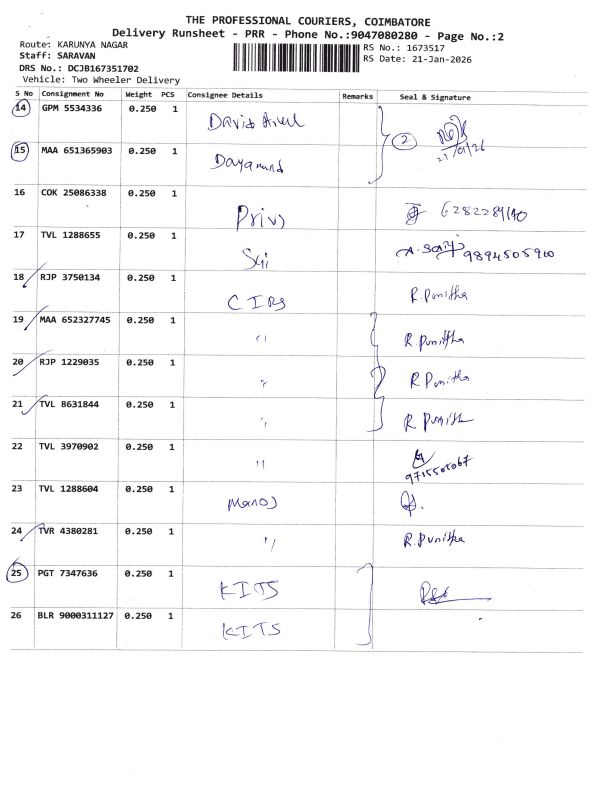 THE PROFESSIONAL COURIERS, COIMBATORE
Delivery Runsheet - PRR - Phone No.:9047080280 - Page No.:2
Route: KARUNYA NAGAR
RS No.: 1673517
Staff: SARAVAN
RS Date: 21-Jan-2026
DRS No.: DCJB167351702
Vehicle: Two Wheeler Delivery
S No Consignment No Weight PCS Consignee Details Remarks Seal & Signature
14 GPM 5534336 0.250 1 David
15 MAA 651365903 0.250 1 Dayanand 2 21/01/26
16 COK 25086338 0.250 1 Priya
17 TVL 1288655 0.250 1 Sai 9894505900
18 RJP 3750134 0.250 1 CIRS R. Punitha
19 MAA 652327745 0.250 1 " R. Punitha
20 RJP 1229035 0.250 1 " R. Punitha
21 TVL 8631844 0.250 1 " R. Punitha
22 TVL 3970902 0.250 1 " 9715505067
23 TVL 1288604 0.250 1 Manoj
24 TVR 4380281 0.250 1 " R. Punitha
25 PGT 7347636 0.250 1 KITS
26 BLR 9000311127 0.250 1 KITS